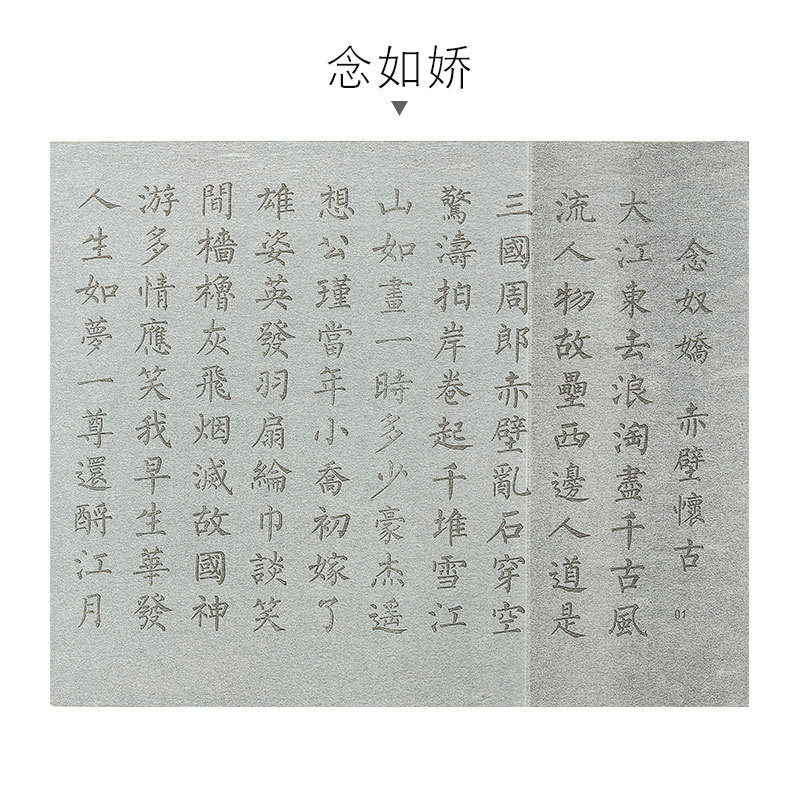 念如娇
念奴嬌 赤壁懷古
01
大江東去浪淘盡千古風
流人物故壘西邊人道是
三國周郎赤壁亂石穿空
驚濤拍岸卷起千堆雪江
山如畫一時多少豪杰遥
想公瑾當年小喬初嫁了
雄姿英發羽扇綸巾談笑
間檣櫓灰飛烟滅故國神
游多情應笑我早生華發
人生如夢一尊還酹江月